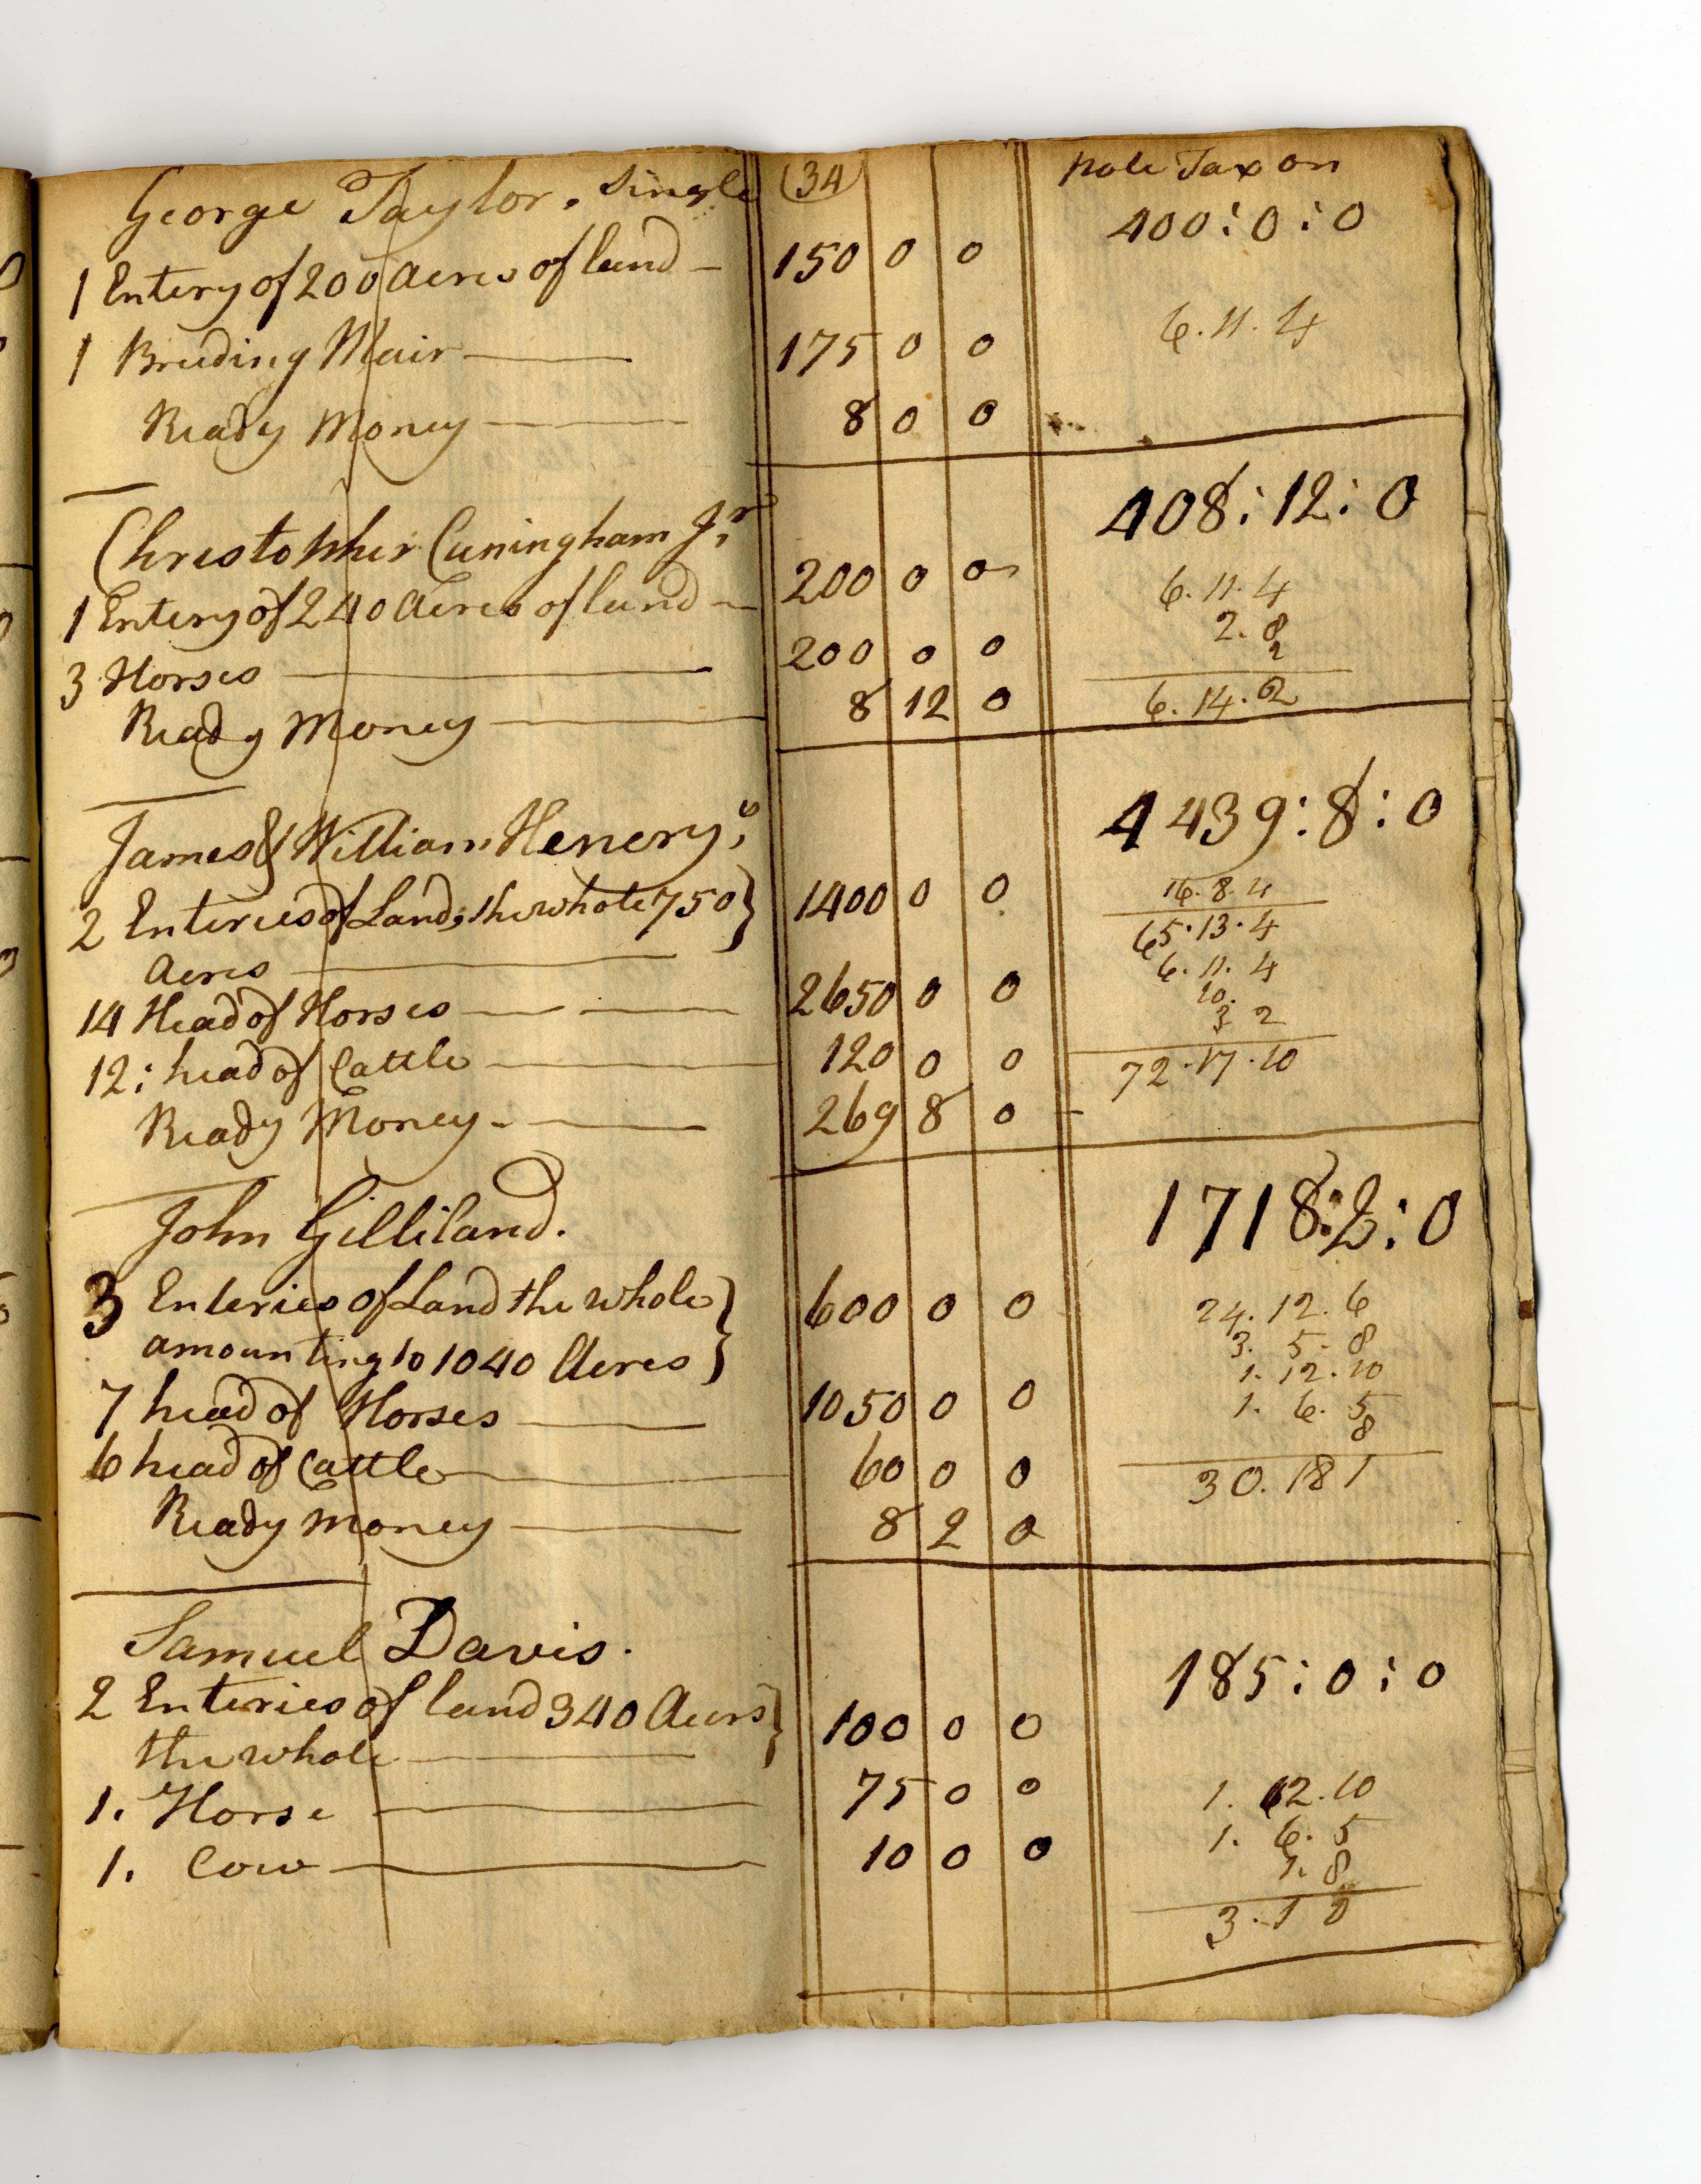 George Taylor. Single (34) pole Tax on
400:0:0
1 Entery of 200 Acres of land — 150 0 0
6.11.4
1 Breeding Mair — 175 0 0
Ready Money — 8 0 0
Christopher Cuningham Jr. 408:12:0
1 Entery of 240 Acres of land — 200 0 0
6.11.4
2.8
2
3 Horses — 200 0 0
6.14.2
Ready Money — 8 12 0
James & William Henery's 4439:8:0
2 Enteries of Land; the whole 750 } 1400 0 0
Acres —
16.8.4
65.13.4
6.11.4
10.
3 2
72.17.10
14 Head of Horses — 2650 0 0
12: head of Cattle — 120 0 0
Ready Money — 269 8 0
John Gilliland. 1718:2:0
3 Enteries of Land the whole } 600 0 0
amounting to 1040 Acres }
24.12.6
3. 5.8
1.12.10
1. 6. 5
8
30.18 1
7 head of Horses — 1050 0 0
6 head of Cattle — 60 0 0
Ready money — 8 2 0
Samuel Davis. 185:0:0
2 Enteries of land 340 Acers } 100 0 0
the whole —
1. Horse — 75 0 0
1. Cow — 10 0 0
1. 12.10
1. 6. 5
1. 8
3.1 0